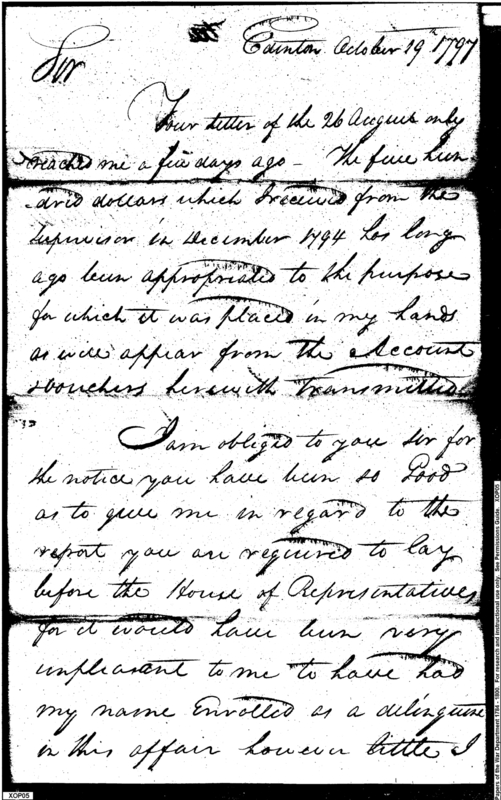 Edenton October 19th 1797
Sir
Your Letter of the 26 August only
reached me a few days ago – The five hun
dred dollars which I received from the
Supervisor in December 1794 has long
ago been appropriated to the purpose
for which it was placed in my hands
as will appear from the Account
& vouchers herewith transmitted
I am obliged to you Sir for
the notice you have been so Good
as to give me in regard to the
report you are required to lay
before the House of Representatives
for it would have been very
unpleasant to me to have had
my name Enrolled as a delinquent
in this affair however little I
XOP05
Papers of the War Department 1784 - 1800. For research and instructional use only. See Permissions Guide. XOP05